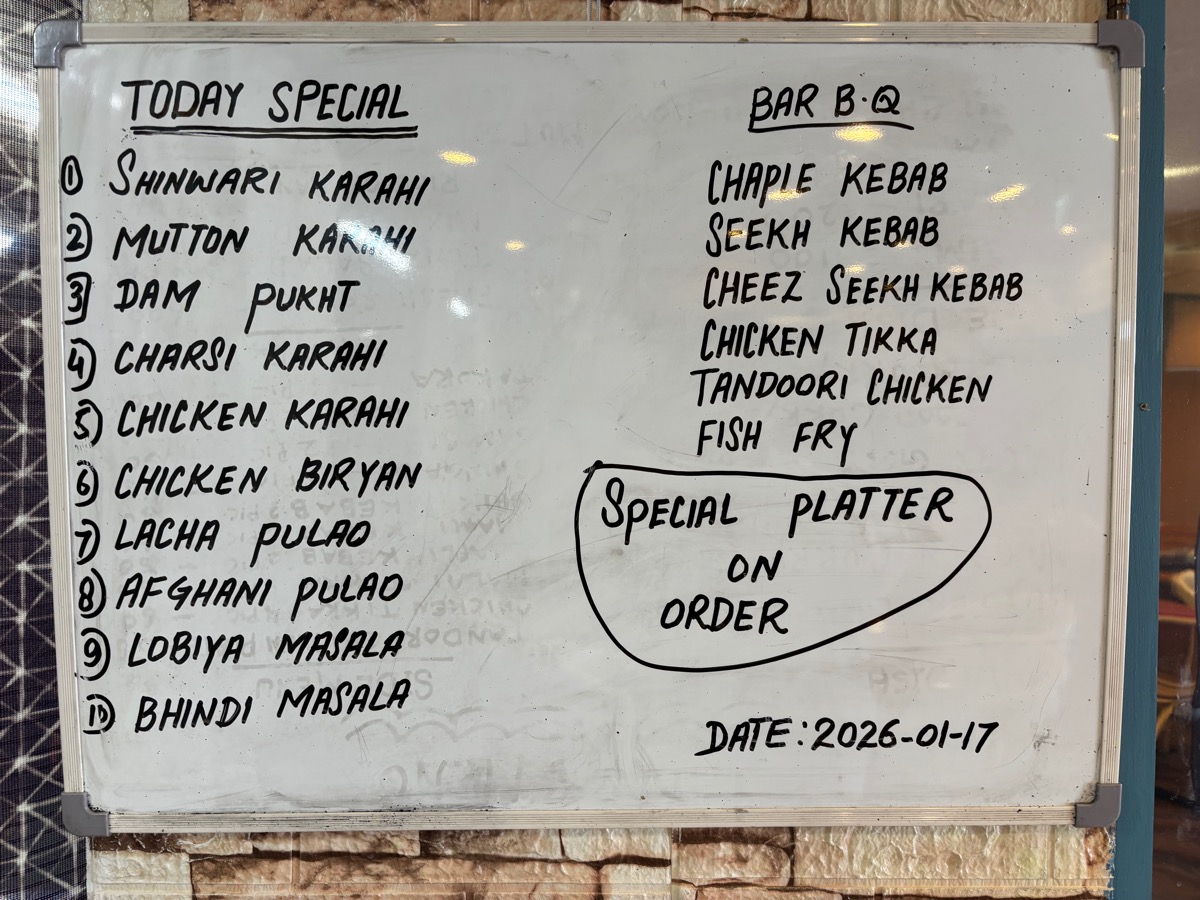 TODAY SPECIAL
① SHINWARI KARAHI
② MUTTON KARAHI
③ DAM PUKHT
④ CHARSI KARAHI
⑤ CHICKEN KARAHI
⑥ CHICKEN BIRYAN
⑦ LACHA PULAO
⑧ AFGHANI PULAO
⑨ LOBIYA MASALA
⑩ BHINDI MASALA
BAR B.Q
CHAPLE KEBAB
SEEKH KEBAB
CHEEZ SEEKH KEBAB
CHICKEN TIKKA
TANDOORI CHICKEN
FISH FRY
SPECIAL PLATTER
ON
ORDER
DATE: 2026-01-17